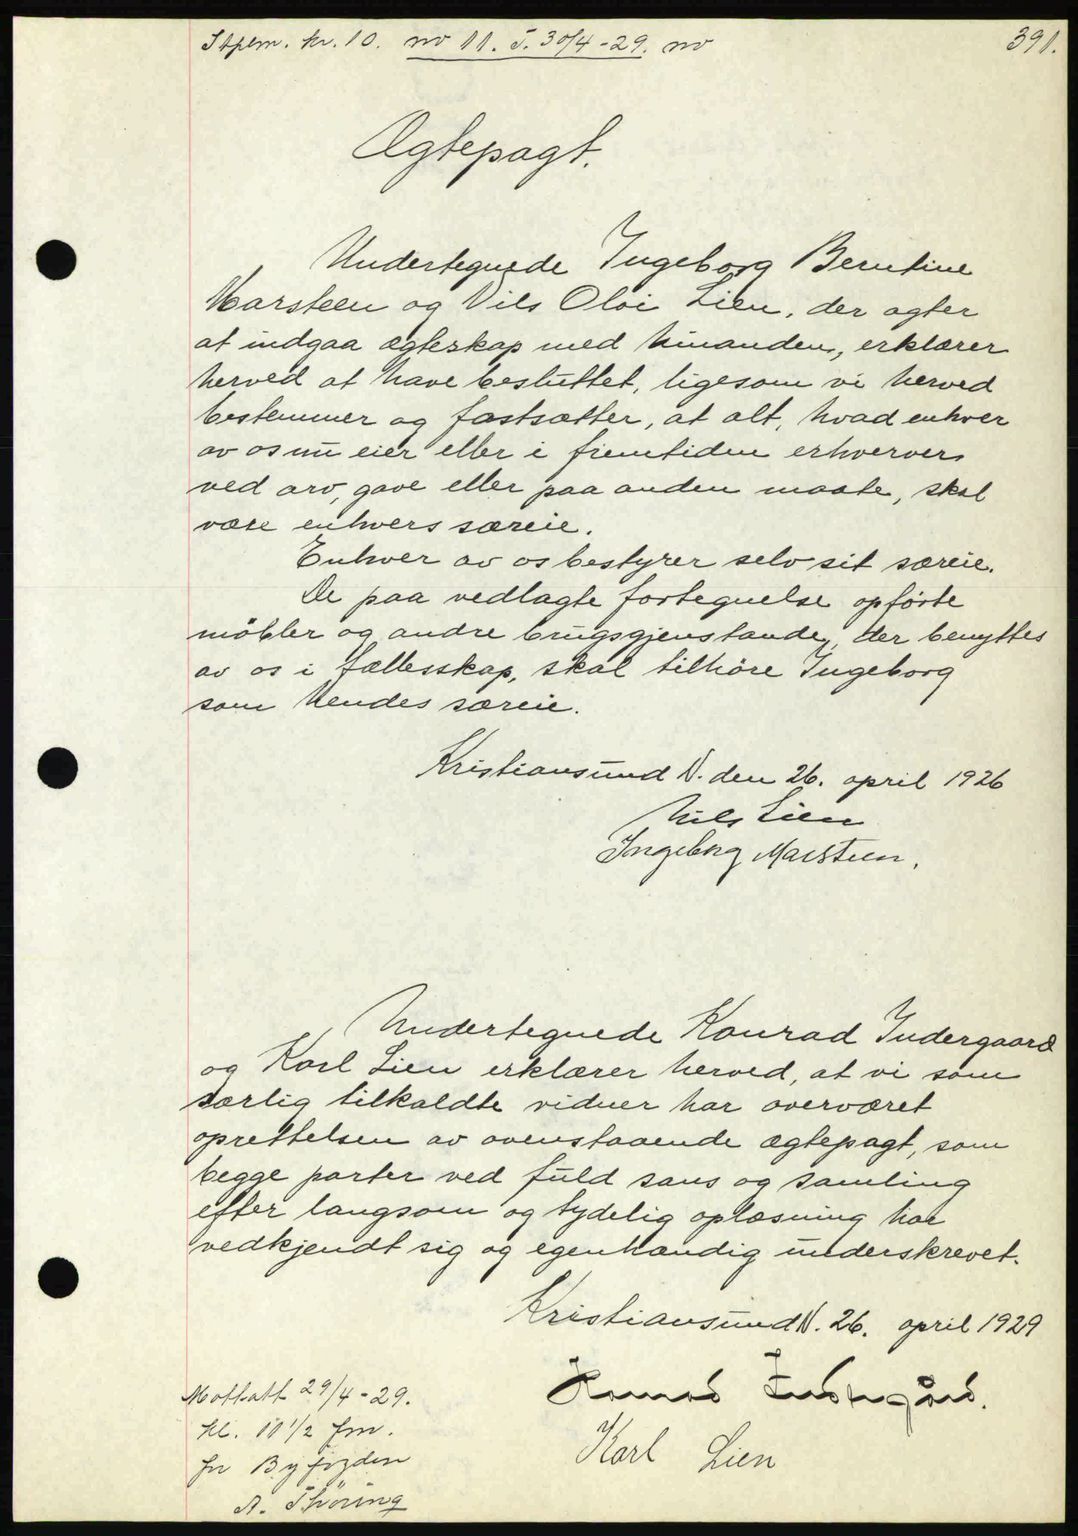 Stplm. kr. 10. no 11. T. 30/4-29. no
391.
Ægtepagt.
Undertegnede Ingeborg Berntine
Marsteen og Nils Oloi Lien, der agter
at indgaa ægteskap med hinanden, erklærer
herved at have besluttet, ligesom vi herved
bestemmer og fastsætter, at alt, hvad enhver
av os nu eier eller i fremtiden erhverver
ved arv, gave eller paa anden maate, skal
være enhvers særeie.
Enhver av os bestyrer selv sit særeie.
De paa vedlagte fortegnelse opførte
möbler og andre brugsgjenstande, der benyttes
av os i fællesskap, skal tilhöre Ingeborg
som hendes særeie.
Kristiansund N. den 26. april 1926
Nils Lien
Ingeborg Marsteen.
Undertegnede Konrad Indergaard
og Karl Lien erklærer herved, at vi som
særlig tilkaldte vidner har overværet
oprettelsen av ovenstaaende ægtepagt, som
begge parter ved fuld sans og samling
efter langsom og tydelig oplæsning har
vedkjendt sig og egenhændig underskrevet.
Kristiansund N. 26. april 1929
Konrad Indergård.
Karl Lien
Mottatt 29/4-29.
kl. 11 1/2 fm.
for Byfogden
A. Thöring